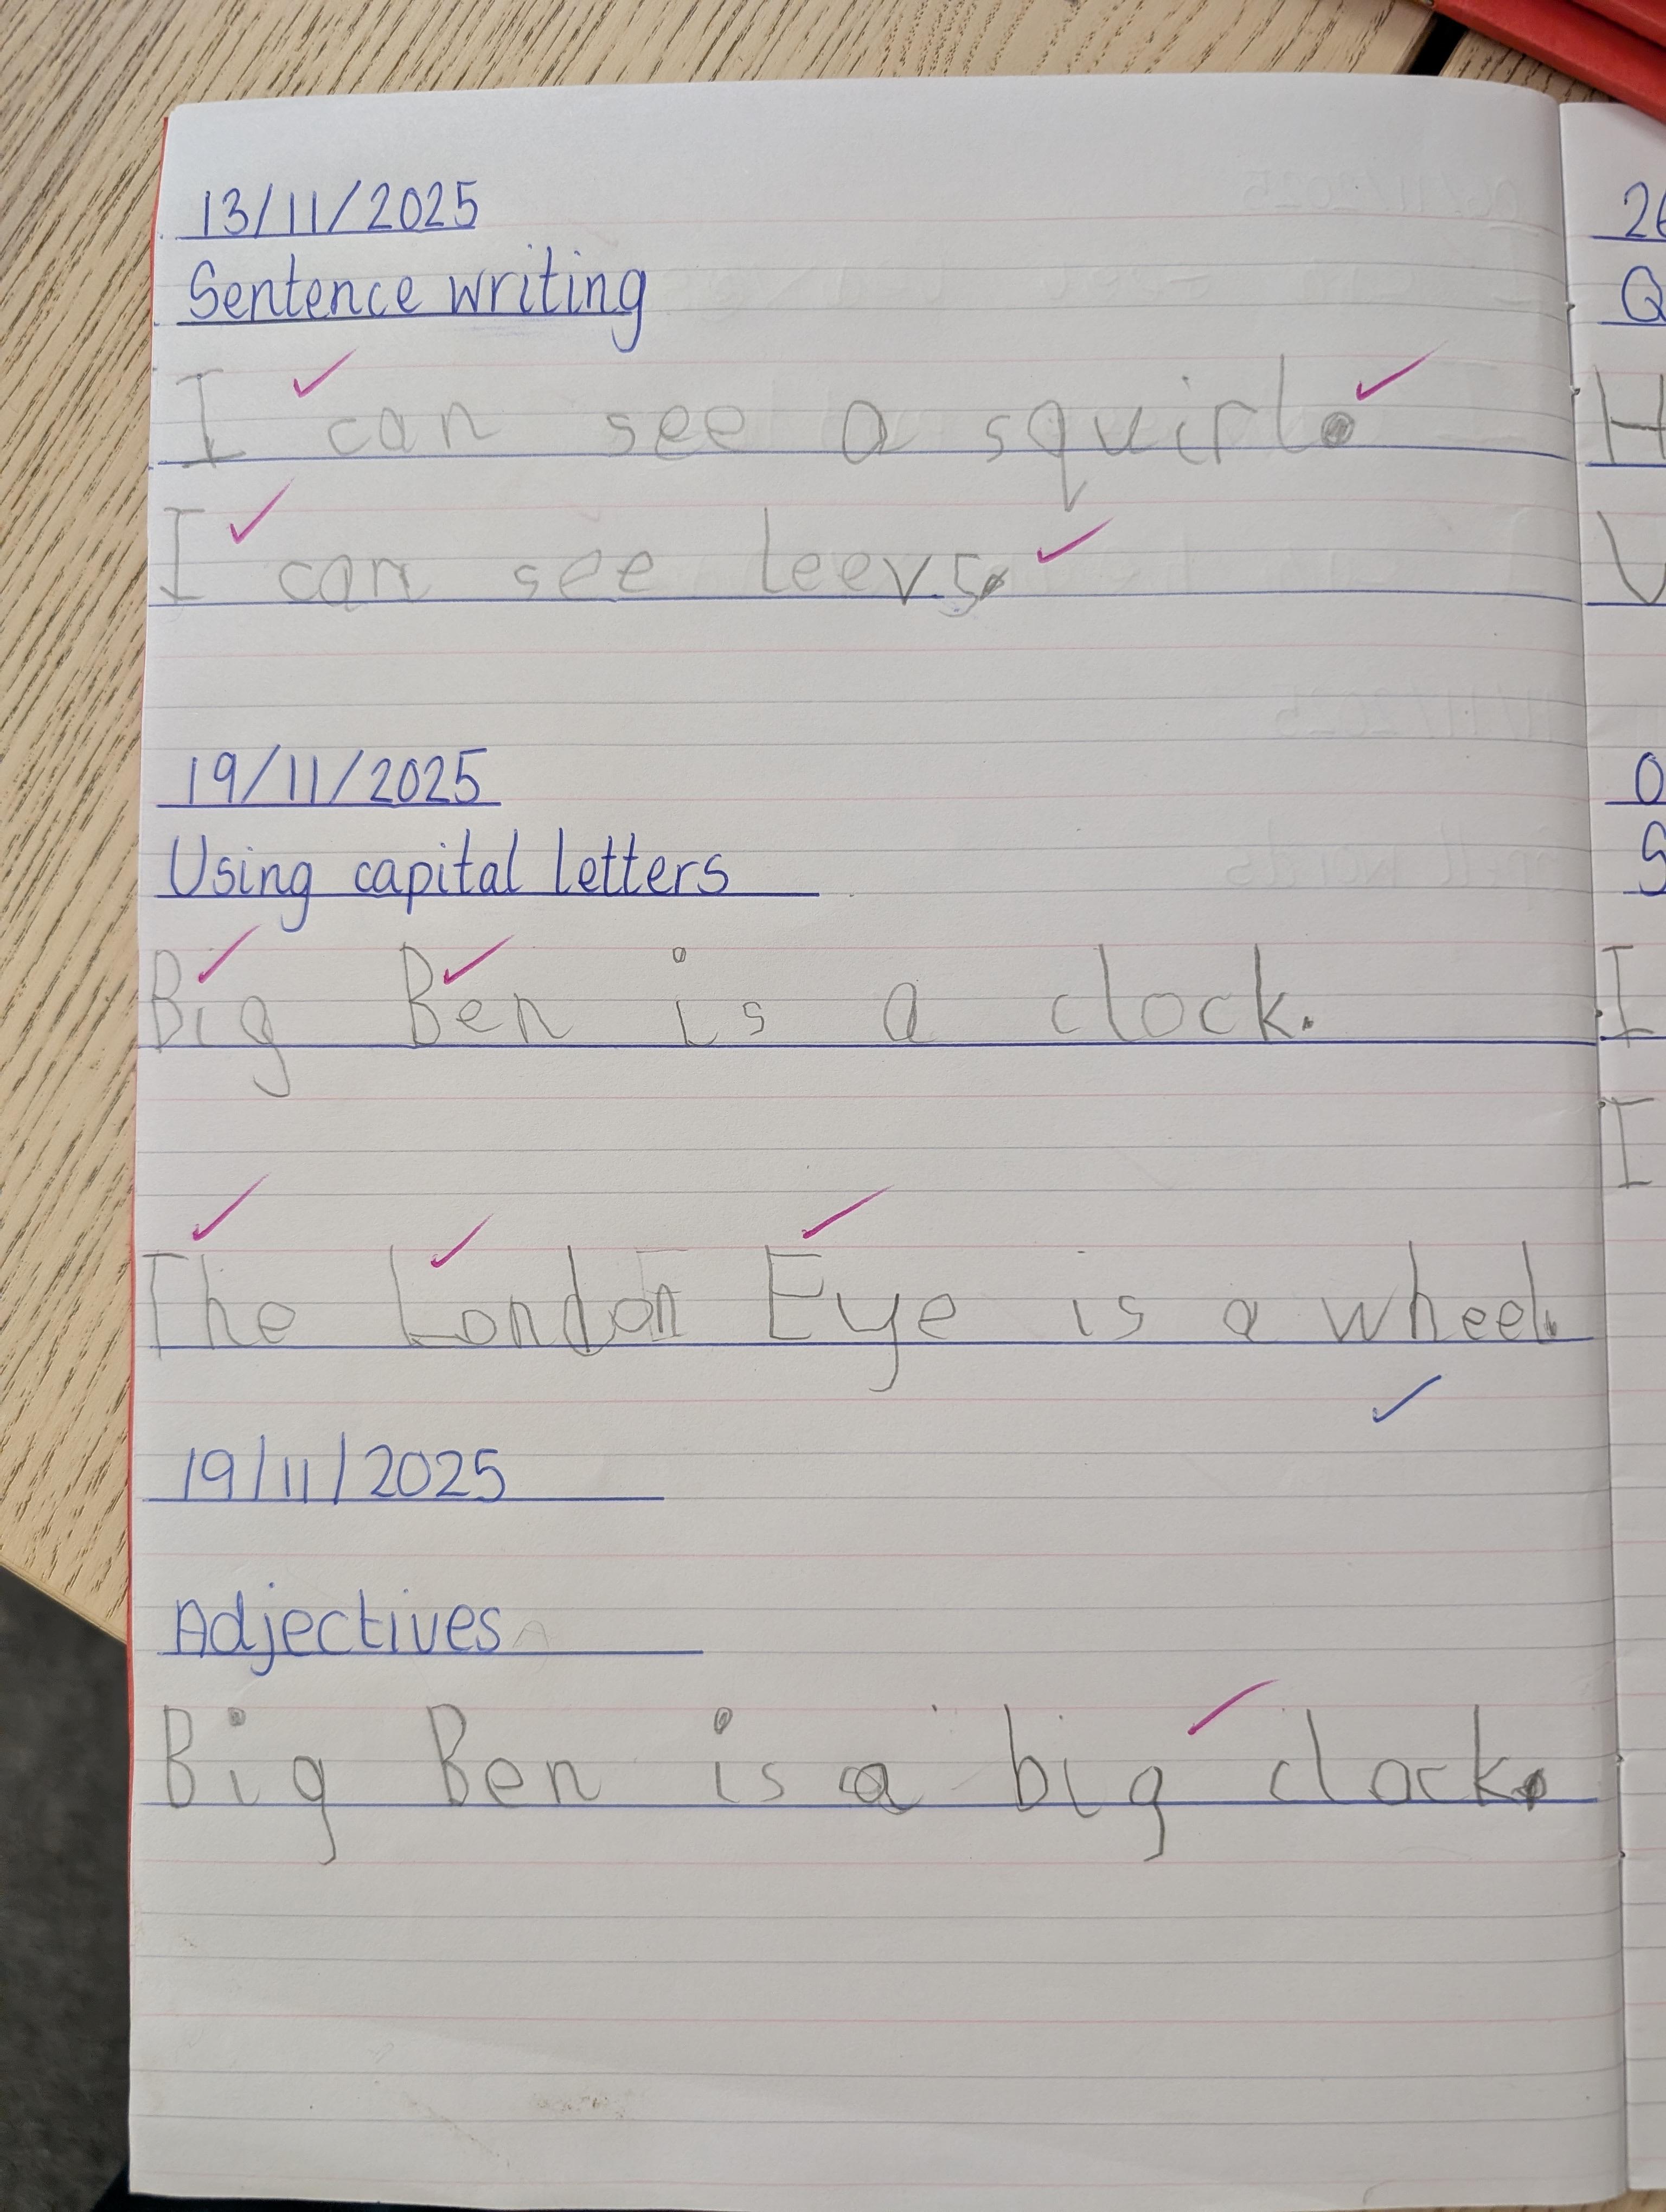 13/11/2025
Sentence writing
I can see a squirl.
I can see leevs.
19/11/2025
Using capital letters
Big Ben is a clock.
The London Eye is a wheel.
19/11/2025
Adjectives
Big Ben is a big clock.